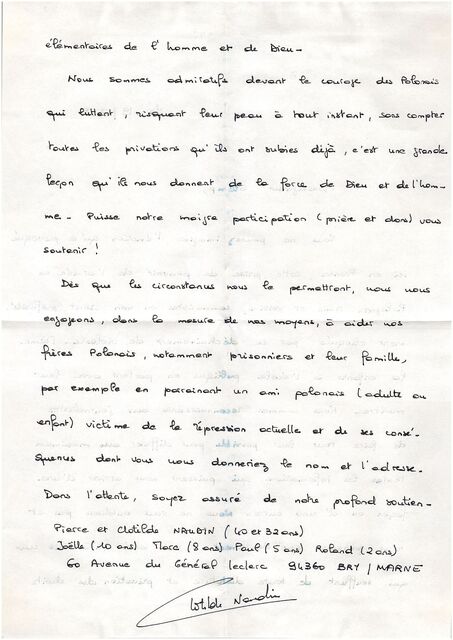 élémentaires de l'homme et de Dieu -
Nous sommes admiratifs devant le courage des Polonais
qui luttent, risquant leur peau à tout instant, sans compter
toutes les privations qu'ils ont subies déjà, c'est une grande
leçon qu'ils nous donnent de la force de Dieu et de l'hom-
me - Puisse notre maigre participation (prière et dons) vous
soutenir !
Dès que les circonstances nous le permettront, nous nous
engageons, dans la mesure de nos moyens, à aider nos
frères Polonais, notamment prisonniers et leur famille,
par exemple en parrainant un ami polonais (adulte ou
enfant) victime de la répression actuelle et de ses consé-
quences dont vous nous donneriez le nom et l'adresse -
Dans l'attente, soyez assuré de notre profond soutien -
Pierre et Clotilde NAUDIN (40 et 32 ans)
Joëlle (10 ans) Marc (8 ans) Paul (5 ans) Roland (2 ans)
60 Avenue du Général Leclerc 94360 BRY / MARNE
Clotilde Naudin